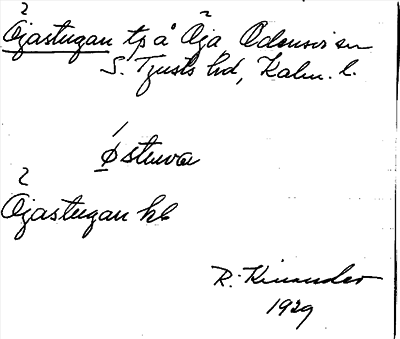 Öjastugan tp å Öja Odensvi sn
S. Tjusts hd, Kalm. l.
Østuwa
Öjastugan hb
R. Kinander
1929